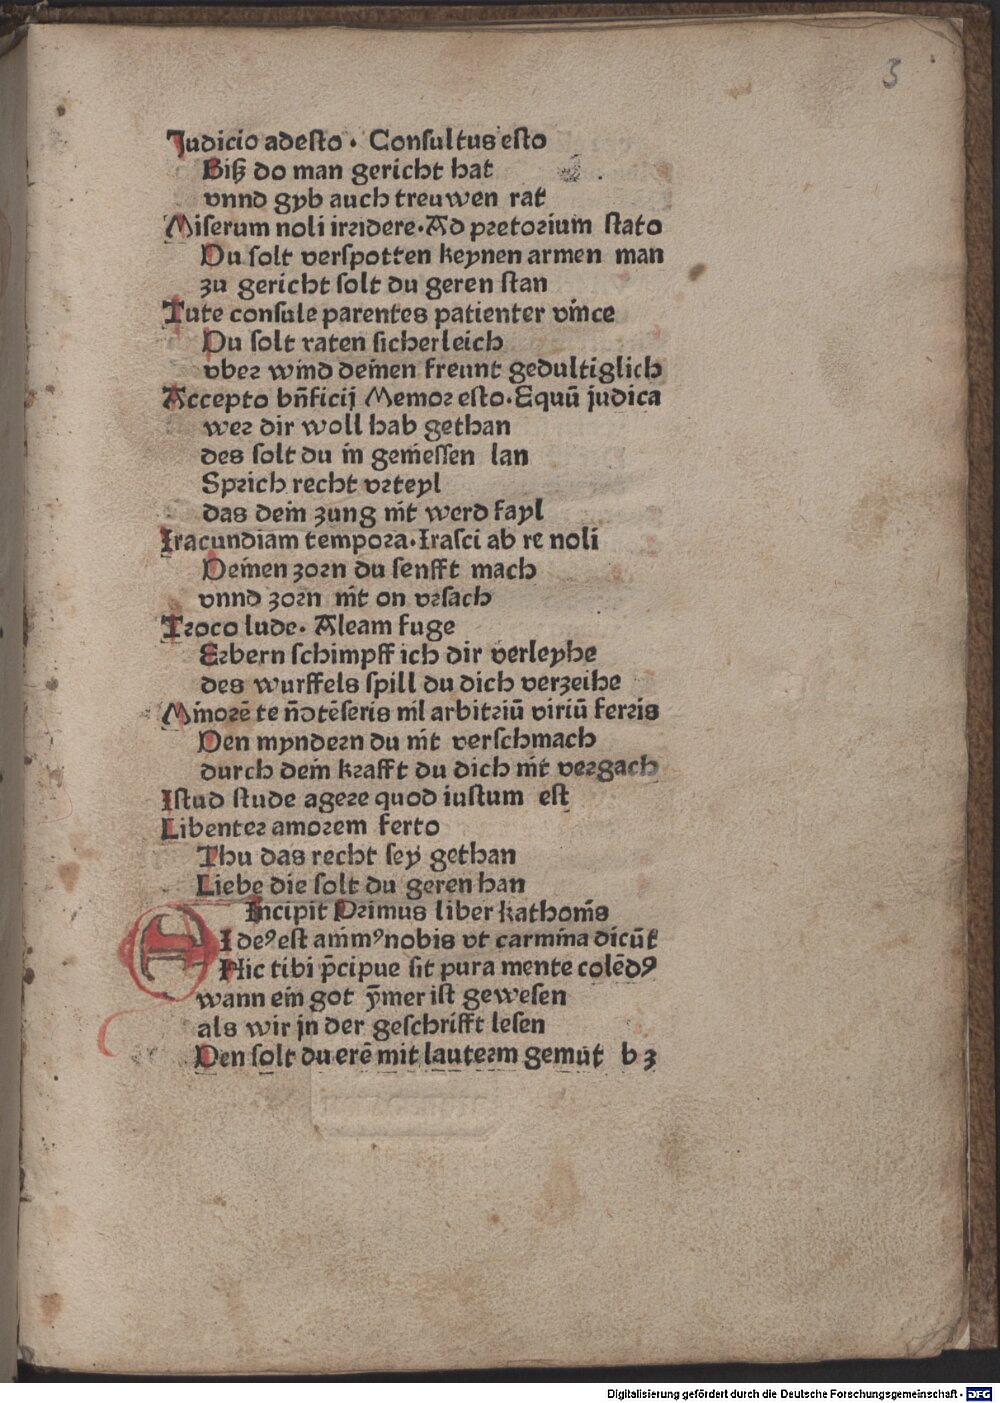 3
Judicio adesto · Consultus esto
Biß do man gericht hat
vnnd gyb auch treuwen rat
Miserum noli irridere · Ad pretorium stato
Du solt verspotten keynen armen man
zu gericht solt du geren stan
Tute consule parentes patienter vīnce
Du solt raten sicherleich
vber wind deīnen freunt gedultiglich
Accepto bn̄ficij Memor esto · Equū judica
wer dir woll hab gethan
des solt du īn gemessen lan
Sprich recht vrteyl
das deīn zung nīt werd fayl
Iracundiam tempora · Irasci ab re noli
Deīnen zorn du senfft mach
vnnd zorn nīt on vrsach
Troco lude · Aleam fuge
Erbern schimpff ich dir verleyhe
des wurffels spill du dich verzeihe
Mīnorē te nō tēseris nīl arbitriū viriū ferris
Den myndern du nīt verschmach
durch deīn krafft du dich nīt vergach
Istud stude agere quod iustum est
Libenter amorem ferto
Thu das recht sey gethan
Liebe die solt du geren han
Incipit Primus liber kathonīs
SI deꝰ est anīmꝰ nobis vt carmīna dicūt
Hic tibi p̄cipue sit pura mente colēdꝰ
wann eīn got ȳmer ist gewesen
als wir jn der geschrifft lesen
Den solt du erē mit lauterm gemut b 3
Digitalisierung gefördert durch die Deutsche Forschungsgemeinschaft - DFG